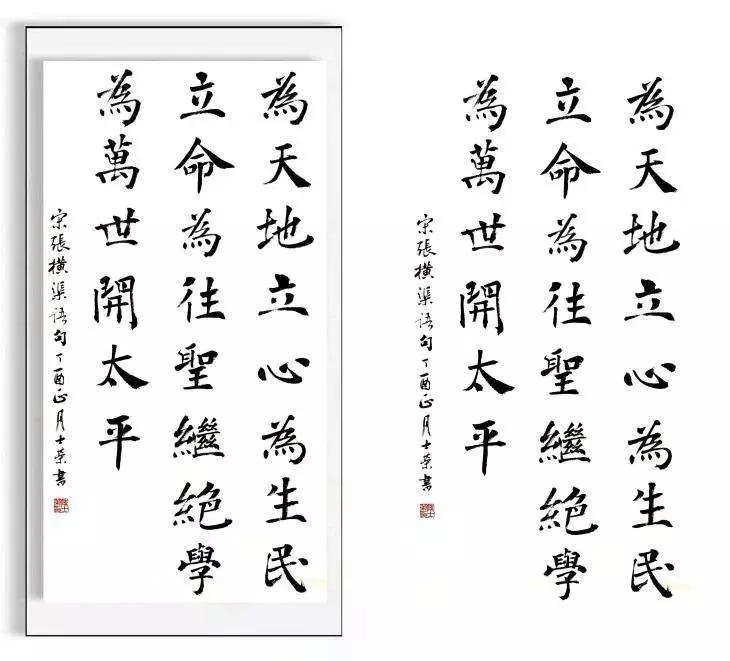 為天地立心為生民
立命為往聖繼絕學
為萬世開太平
宗張橫渠語句丁酉正月士荣書
為天地立心為生民
立命為往聖繼絕學
為萬世開太平
宗張橫渠語句丁酉正月士荣書